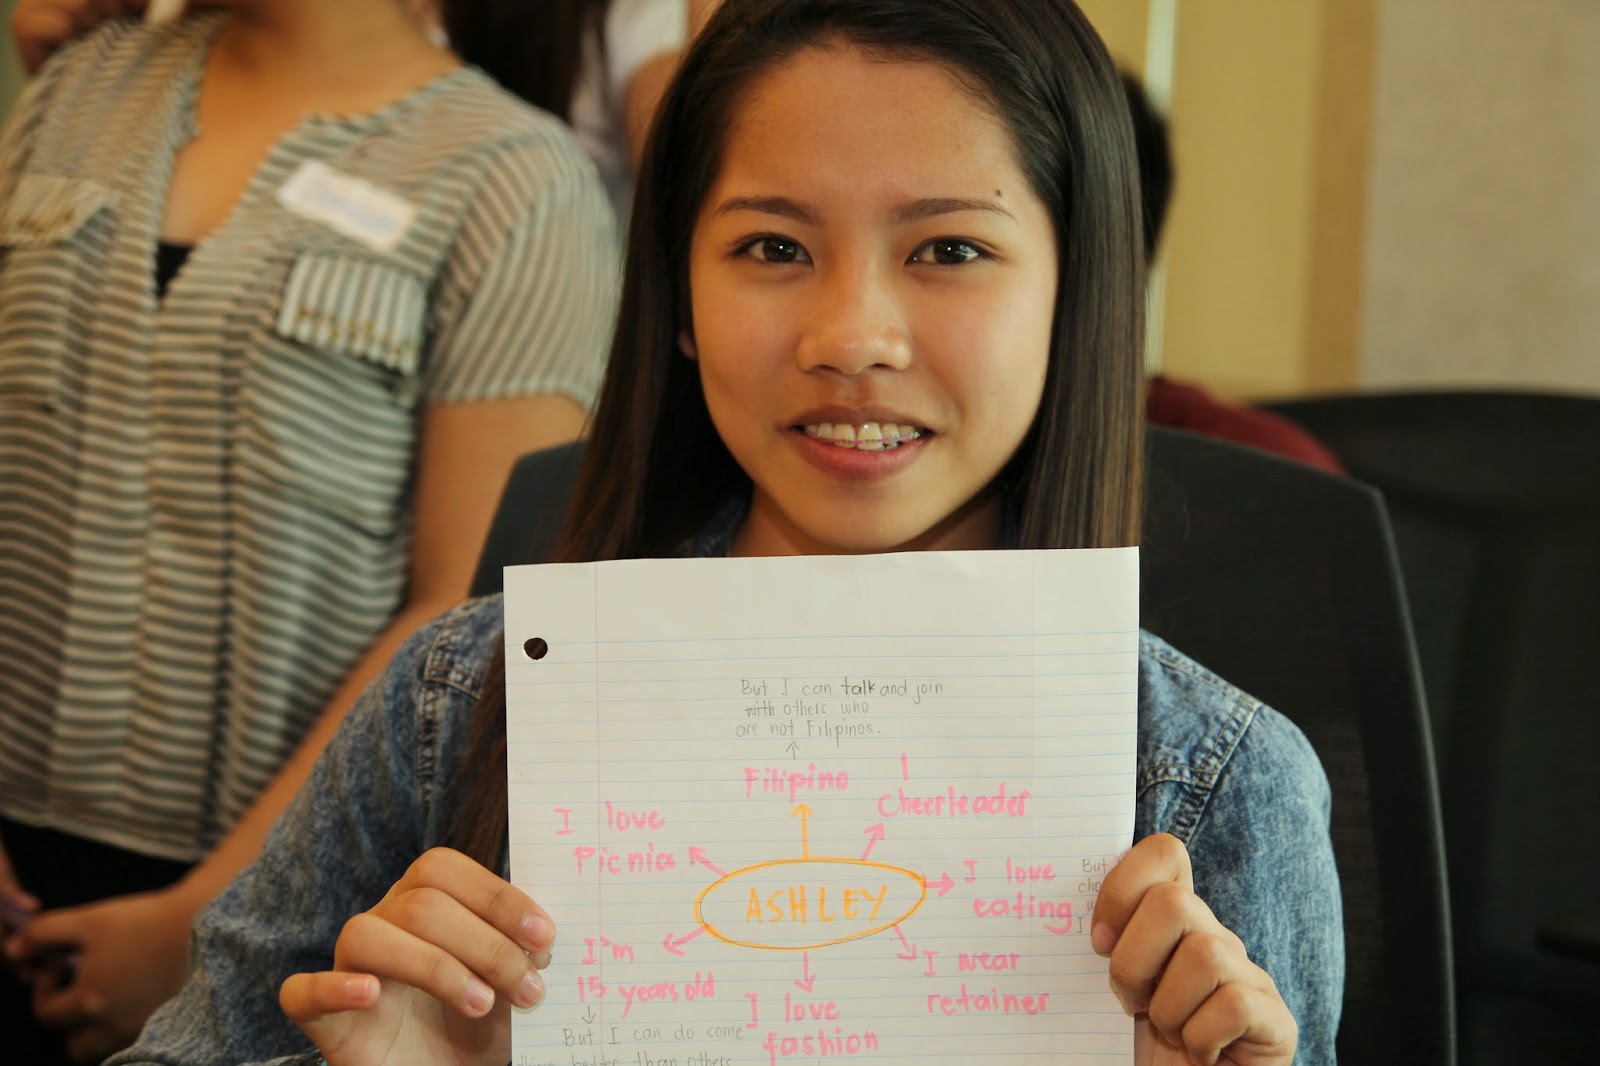 But I can talk and join
with others who
are not Filipinos.
Filipino
I
Cheerleader
I love
Picnics
I love
eating
But
cho
ASHLEY
I'm
15 years old
But I can do come
better than others
I love
fashion
I wear
retainer